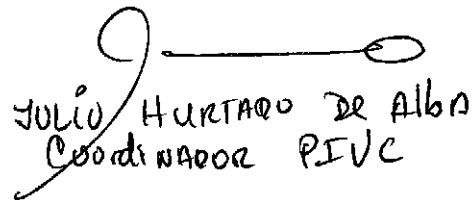 JULIO HURTADO DE AlbA
COORdiNADOR PIVC